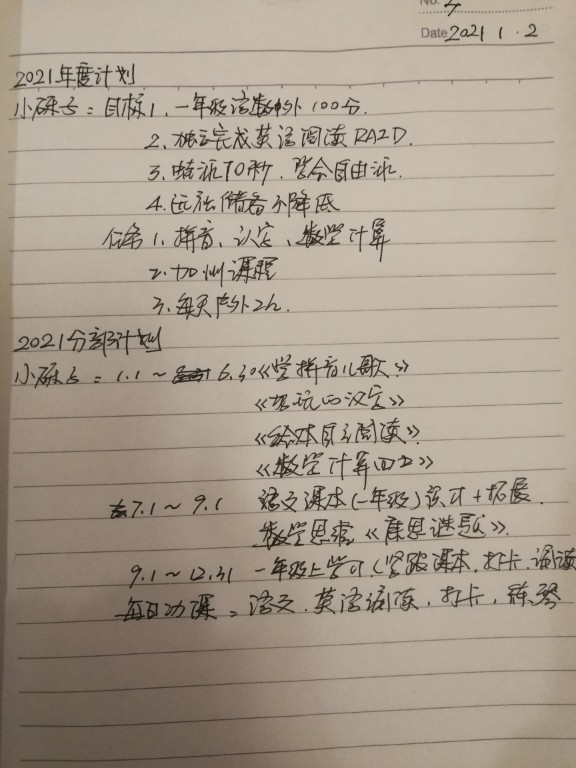 No. 4
Date 2021 1 · 2
2021年度计划
小砾石：目标1. 一年级语数外100分.
2. 独立完成英语阅读RAZD.
3. 蛙泳70秒. 学会自由泳.
4. 远视储备不降低
任务1. 拼音、认字、数学计算
2. 加州课程
3. 每天户外2h.
2021分部计划
小砾石：1.1～6.30《学拼音儿歌》
《好玩的汉字》
《绘本自主阅读》
《数学计算四五》
7.1～9.1 语文课本(一年级)识才+拓展.
数学思维《康思谜题》.
9.1～12.31 一年级上学习(紧跟课本,打卡,诵读
每日功课：语文.英语诵读,打卡,练琴